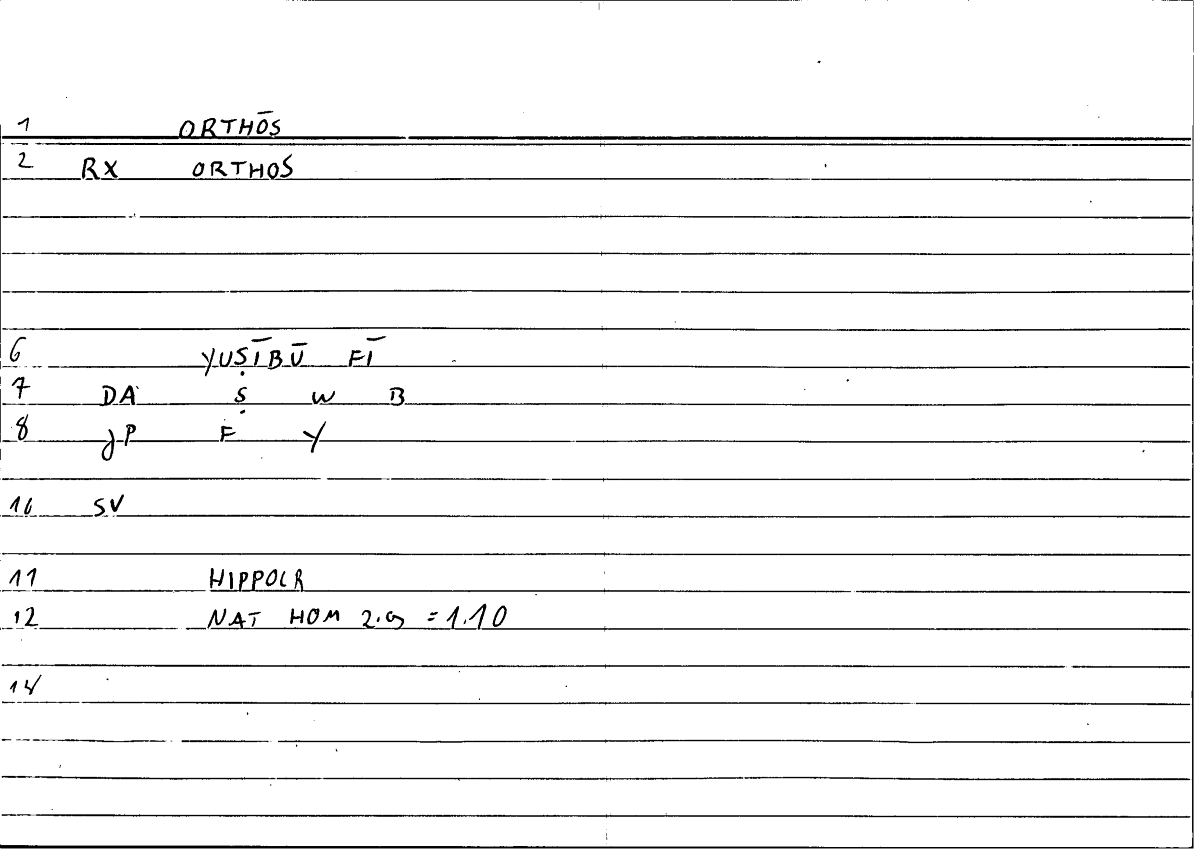 1 ORTHŌS
2 RX ORTHOS
6 YUṢĪBŪ FĪ
7 DA Ṣ W B
8 JP F Y
10 SV
11 HIPPOCR
12 NAT HOM 2.9 = 1.10
14